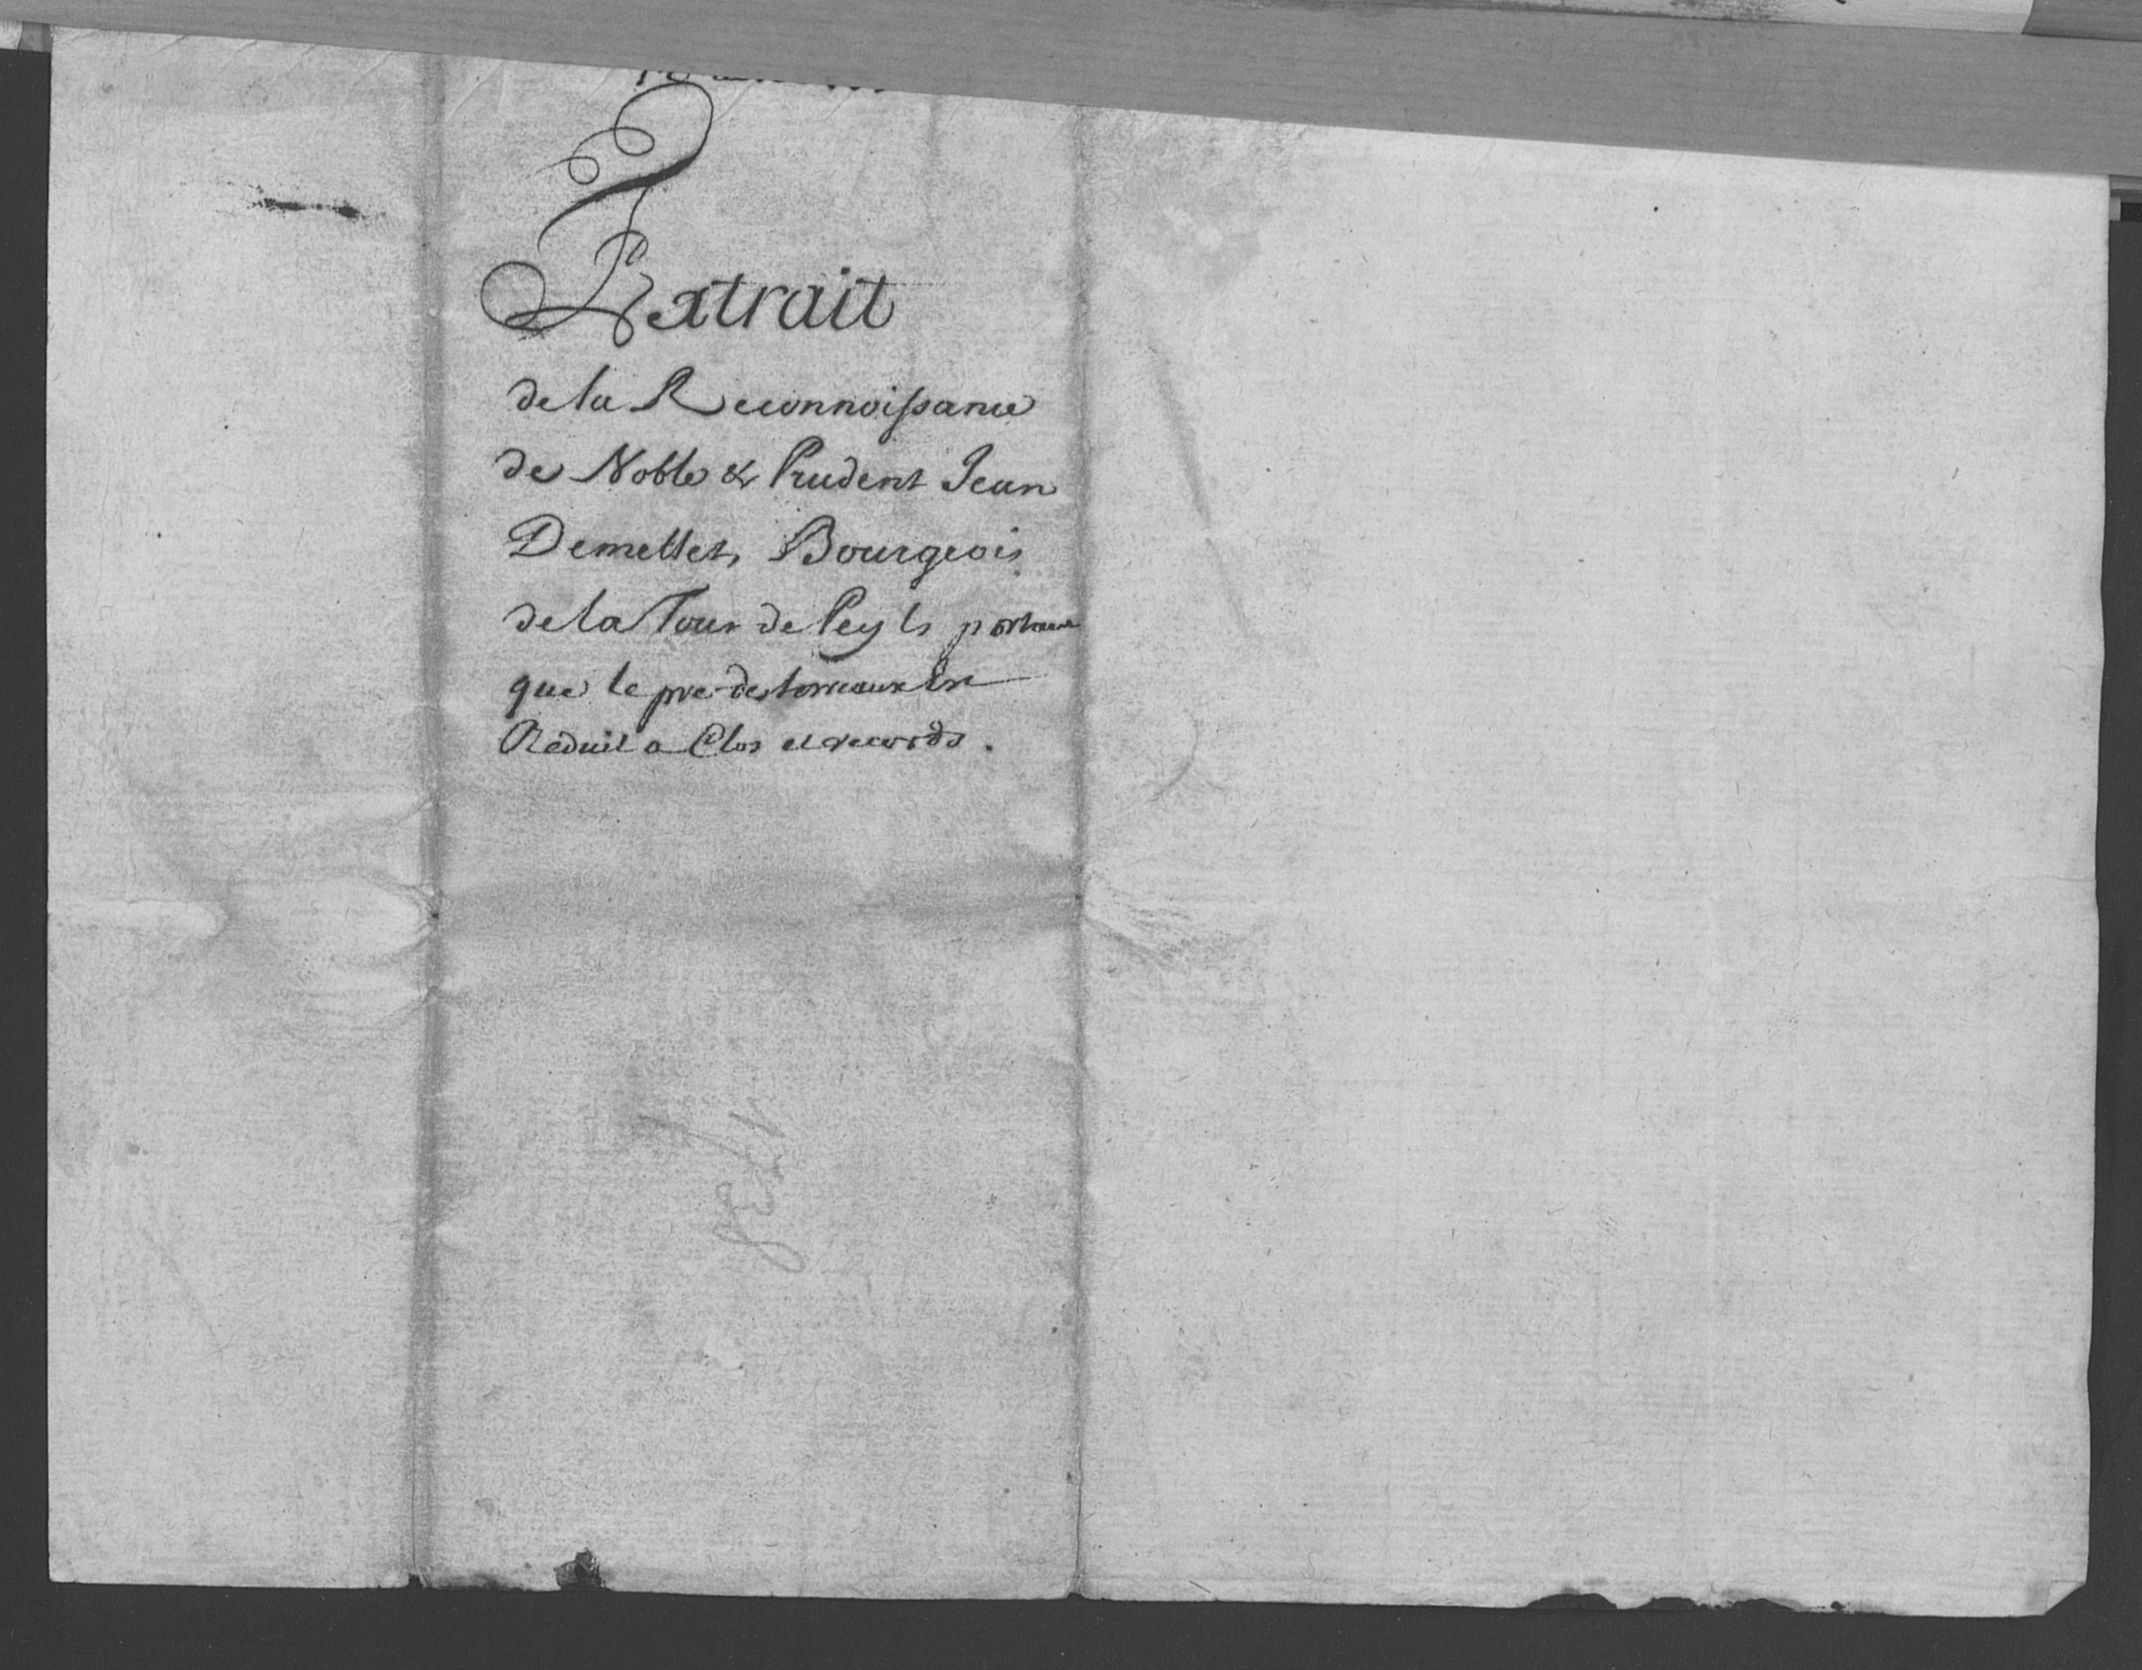 Extrait
de la Reconnoissance
de Noble & Prudent Jean
Demellet, Bourgeois
de la Tour de Peyls portant
que le pré des terreaux est
Reduit a Clos et records.